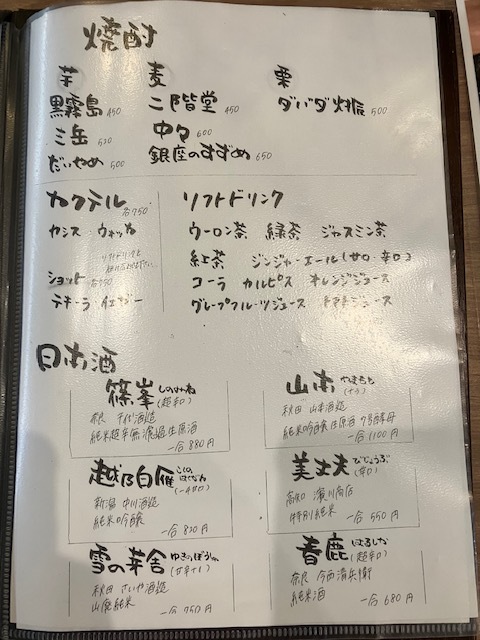 焼酎
芋 麦 栗
黒霧島 450 二階堂 450 ダバダ火振 500
三岳 520 中々 600
だいやめ 500 銀座のすずめ 650
カクテル 各750 ソフトドリンク
カシス・ウォッカ ウーロン茶 緑茶 ジャスミン茶
紅茶 ジンジャーエール(甘口・辛口)
ショット 各750 コーラ カルピス オレンジジュース
テキーラ イエガー グレープフルーツジュース ジュース
日本酒
篠峯 しのみね (超辛口)
奈良 千代酒造
純米超辛無濾過生原酒
一合 880円
山本 やまもと
秋田 山本酒造
純米吟醸生原酒 7号酵母
一合 1100円
越乃白雁 こしの はくがん
新潟 中川酒造
純米吟醸
一合 820円
美丈夫 びじょうふ (辛口)
高知 濵川商店
特別純米
一合 550円
雪の芽舎 ゆきのぼうしゃ
秋田 さいや酒造
山廃純米
一合 750円
春鹿 はるしか (超辛口)
奈良 今西清兵衛
純米酒
一合 680円